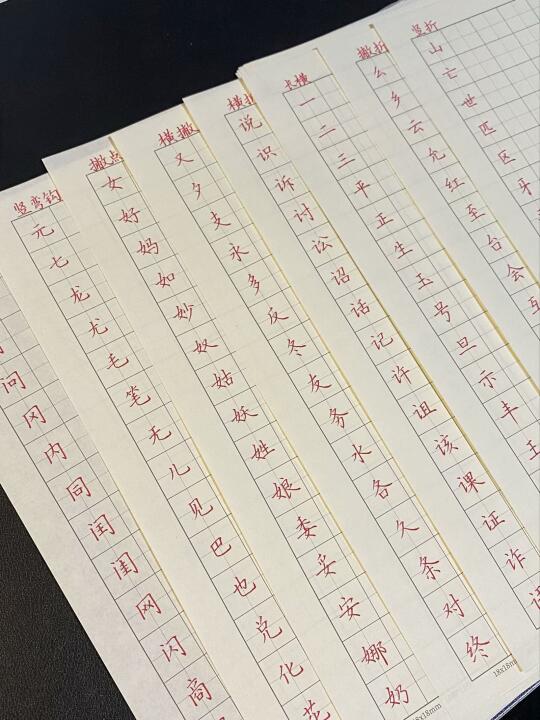 问冈内同闰闺网闪商
竖弯钩
元七龙尤毛笔无儿见巴也兑化花
撇点
女好妈如妙奴姑妖姓娘委妥安娜奶
横撇
又夕支永多反冬友务水各久条对终
横折
说识诉讨讼诏话记许诅该课证诈
长横
一二三平正生玉号旦示丰王
撇折
么乡云允红至台会
竖折
山亡世匹区牙